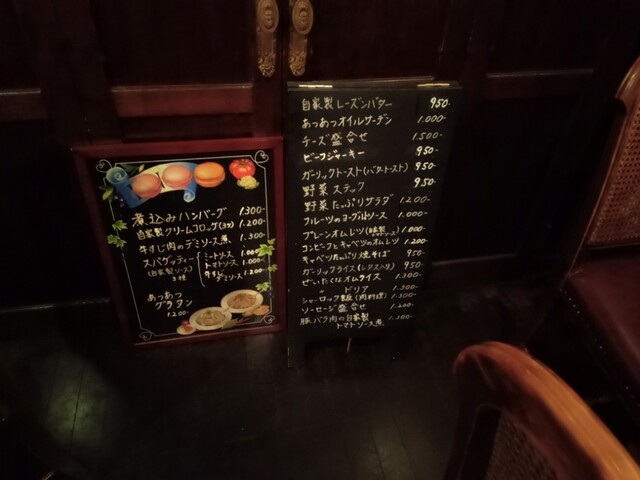 煮込みハンバーグ 1.300-
自家製クリームコロッケ(3ヶ) 1.200-
牛すじ肉のデミソース煮 1.300-
スパゲッティー ミートソース 1.000-
(自家製ソース) トマトソース 1.000-
3種 牛すじデミソース 1.200-
あつあつ
グラタン
1.200-
自家製レーズンバター 950-
あつあつオイルサーデン 1.000-
チーズ盛合せ 1.500-
ビーフジャーキー 950-
ガーリックトースト(バタートースト) 950-
野菜スティック 950-
野菜たっぷりサラダ 1.200-
フルーツのヨーグルトソース 1.000-
プレーンオムレツ(自家製トマトソース) 1.000-
コンビーフとキャベツのオムレツ 1.200-
キャベツたっぷり焼そば 950-
ガーリックライス(レタス入り) 950-
ぜいたくなオムライス 1.300-
ドリア 1.300-
シャーロック飯(肉料理) 1.300-
ソーセージ盛合せ 1.200-
豚バラ肉の自家製
トマトソース煮 1.300-